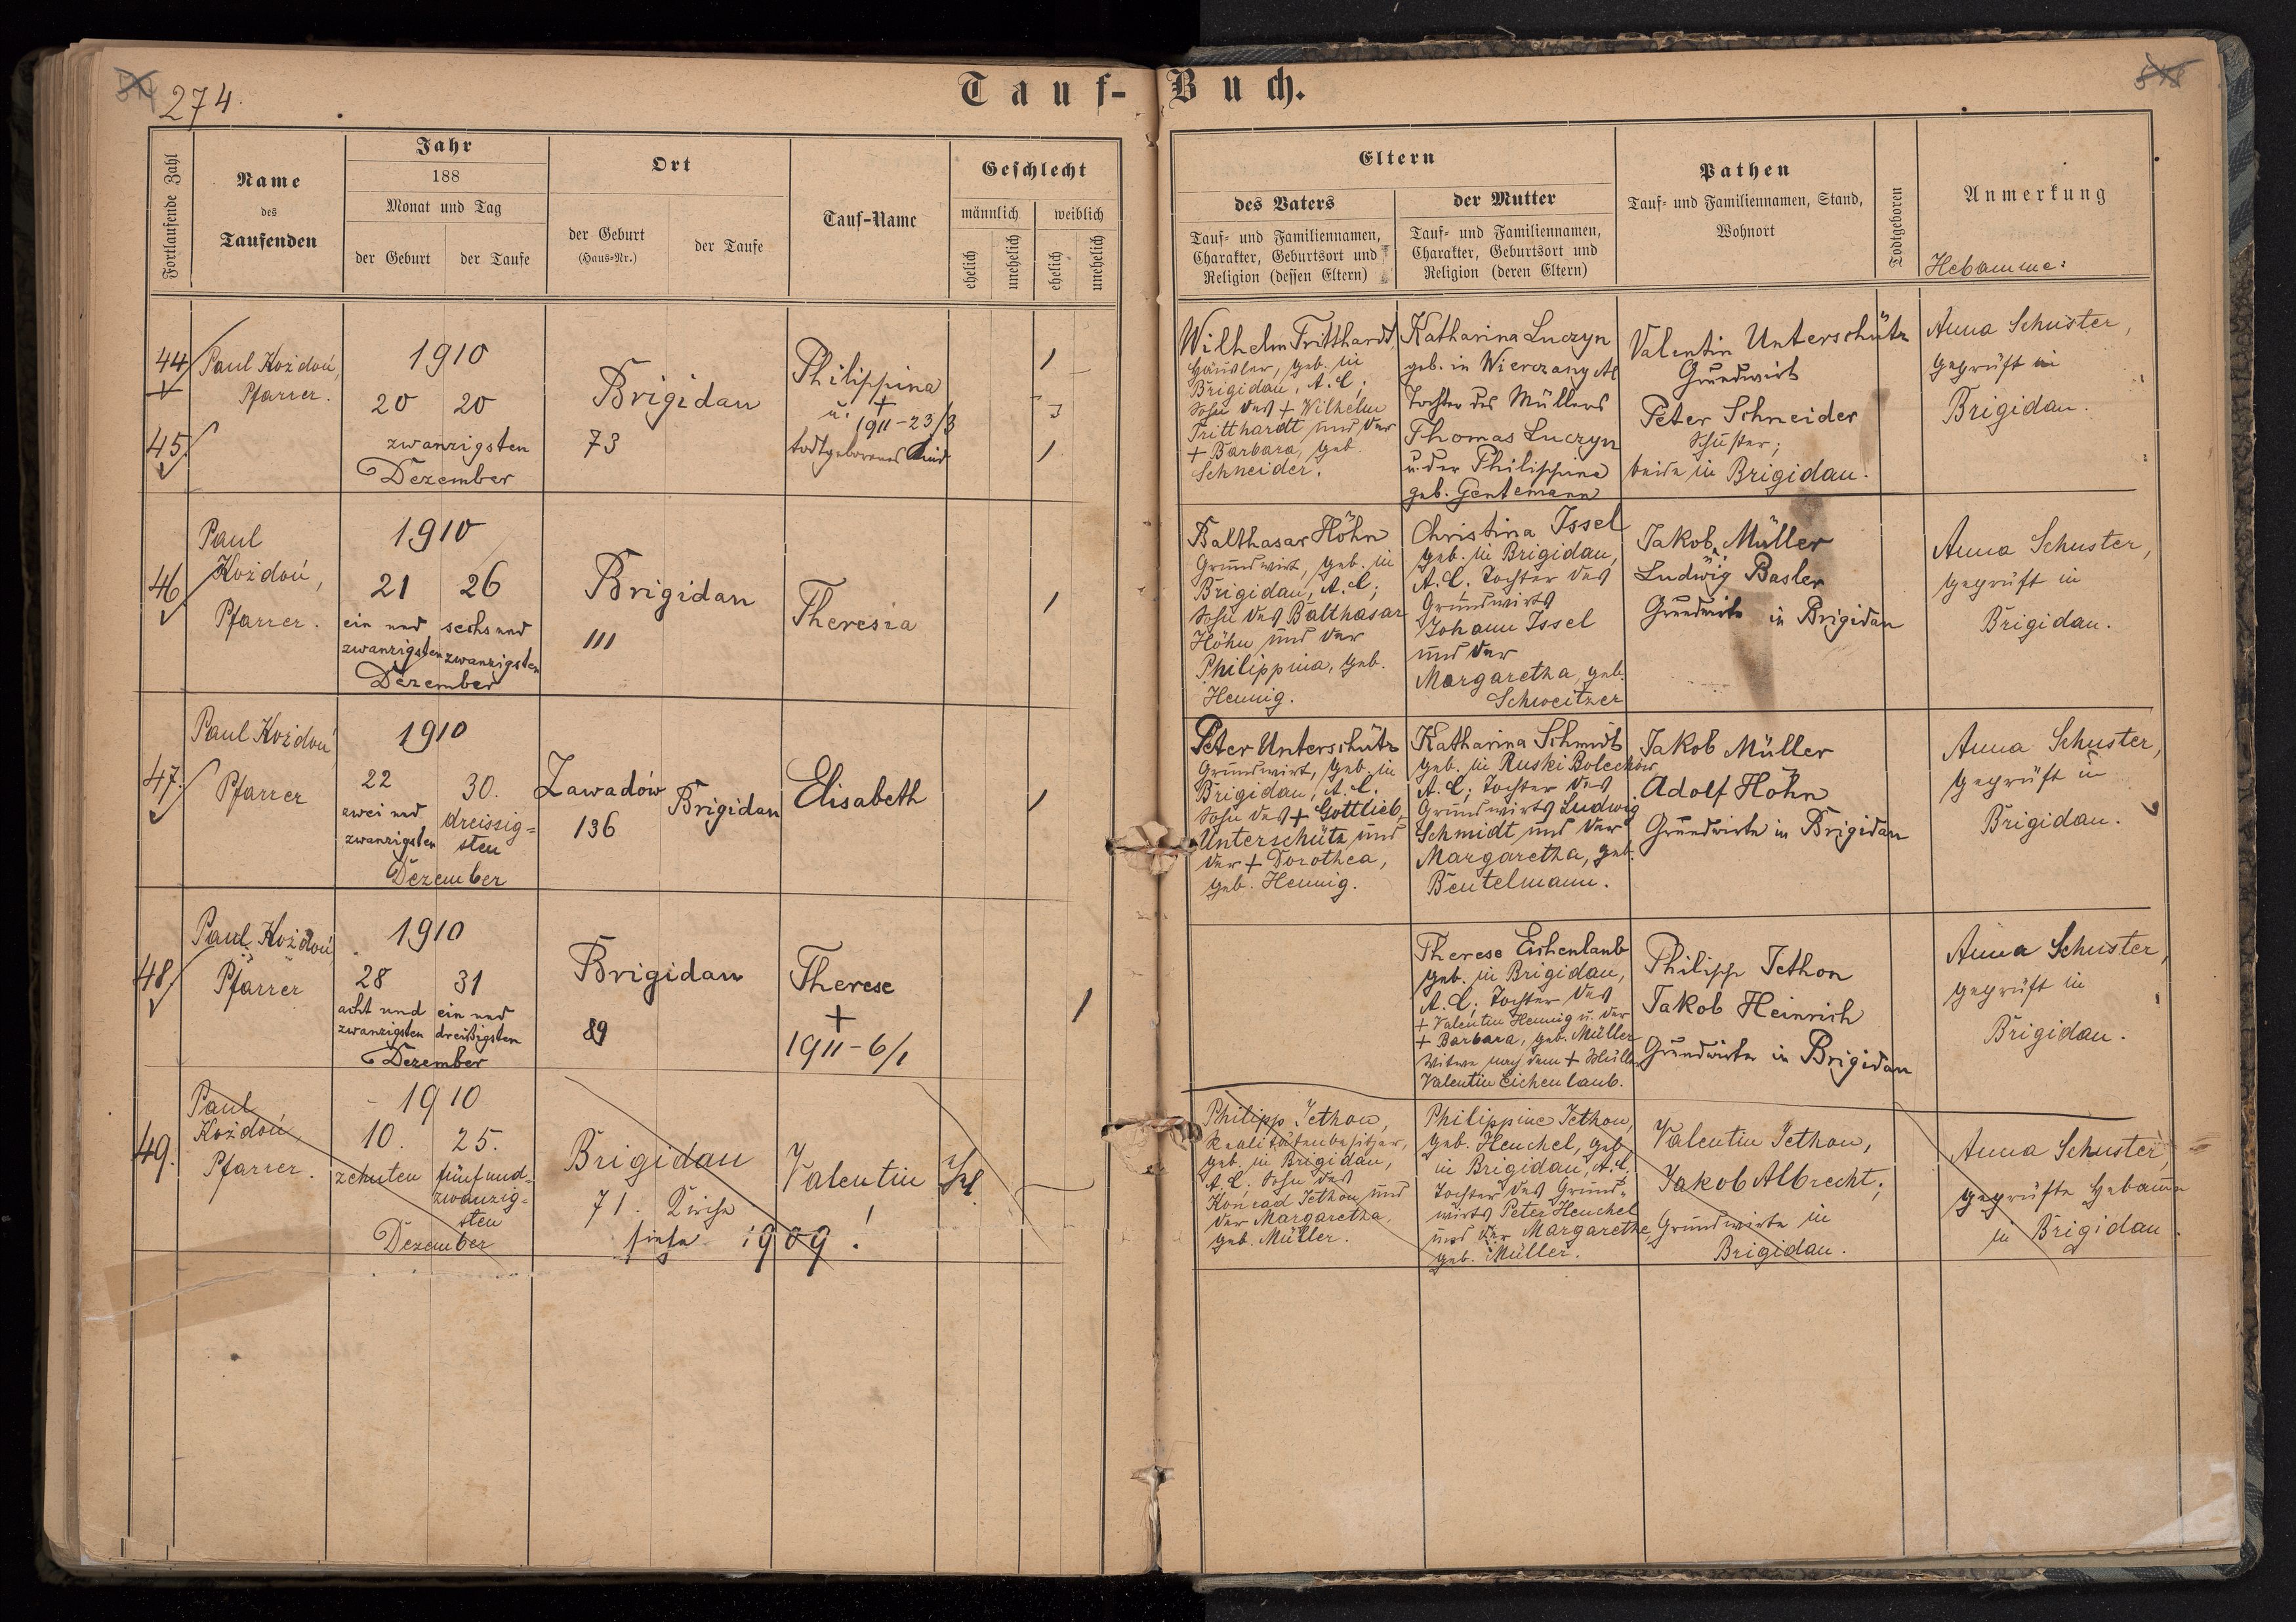 274.
Tauf-Buch.
Fortlaufende Zahl
Name
des
Taufenden
Jahr
188
Monat und Tag
der Geburt
der Taufe
Ort
der Geburt
(Haus-Nr.)
der Taufe
Tauf-Name
Geschlecht
männlich
weiblich
ehelich
unehelich
ehelich
unehelich
Eltern
des Vaters
Tauf- und Familiennamen,
Charakter, Geburtsort und
Religion (dessen Eltern)
der Mutter
Tauf- und Familiennamen,
Charakter, Geburtsort und
Religion (deren Eltern)
Pathen
Tauf- und Familiennamen, Stand,
Wohnort
Todtgeboren
Anmerkung
Hebamme:
44
45.
Paul Kożdoń,
Pfarrer.
1910
20 20
zwanzigsten
Dezember
Brigidau
73
Philippina
u. +
1911-23/3
todtgeborenes Kind
1
1
Wilhelm Tritthardt,
Häusler, geb. in
Brigidau, A.C.;
Sohn des + Wilhelm
Tritthardt und der
+ Barbara, geb.
Schneider.
Katharina Luczyn
geb. in Wierczany AC
Tochter des Müllers
Thomas Luczyn
u. der Philippine
geb. Gentemann
Valentin Unterschütz
Grundwirt
Peter Schneider
Schuster;
beide in Brigidau.
Anna Schuster,
geprüft in
Brigidau.
46.
Paul
Kożdoń,
Pfarrer.
1910
21 26
ein und zwanzigsten
sechs und zwanzigsten
Dezember
Brigidau
111
Theresia
1
Balthasar Höhn
Grundwirt, geb. in
Brigidau, A.C.;
Sohn des Balthasar
Höhn und der
Philippina, geb.
Hennig.
Christina Issel
geb. in Brigidau,
A.C. Tochter des
Grundwirts
Johann Issel
und der
Margaretha, geb.
Schweitzer
Jakob Müller
Ludwig Basler
Grundwirte in Brigidau
Anna Schuster,
geprüft in
Brigidau.
47.
Paul Kożdoń
Pfarrer
1910
22 30.
zwei und zwanzigsten
dreissig=
sten
Dezember
Zawadów
136
Brigidau
Elisabeth
1
Peter Unterschütz
Grundwirt, geb. in
Brigidau, A.C.
Sohn des + Gottlieb
Unterschütz und
der + Dorothea,
geb. Hennig.
Katharina Schmidt
geb. in Ruski Bolechów,
A.C; Tochter des
Grundwirts Ludwig
Schmidt und der
Margaretha, geb.
Beutelmann.
Jakob Müller
Adolf Höhn
Grundwirte in Brigidau
Anna Schuster,
geprüft in
Brigidau.
48.
Paul Kożdoń
Pfarrer
1910
28 31
acht und zwanzigsten
ein und dreißigsten
Dezember
Brigidau
89
Therese
+
1911-6/1
1
Therese Eichenlaub
geb. in Brigidau,
A.C; Tochter des
+ Valentin Hennig u. der
+ Barbara, geb. Müller
Witwe nach dem +
Valentin Eichenlaub.
Philipp Jethon
Jakob Heinrich
Grundwirte in Brigidau
Anna Schuster,
geprüft in
Brigidau.
49.
Paul
Kożdoń,
Pfarrer.
1910
10. 25.
zehnten
fünfund=
zwanzig=
sten
Dezember
Brigidau
71. Kirche
siehe 1909!
Valentin
Philipp Jethon,
Realitätenbesitzer,
geb. in Brigidau,
A.C. Sohn des
Konrad Jethon und
der Margaretha,
geb. Müller.
Philippine Jethon,
geb. Henchel, geb.
in Brigidau, A.C.
Tochter des Grund=
wirts Peter Henchel
und der Margarethe
geb. Müller.
Valentin Jethon,
Jakob Albrecht;
Grundwirte in
Brigidau.
Anna Schuster,
geprüfte Hebamme
in Brigidau.